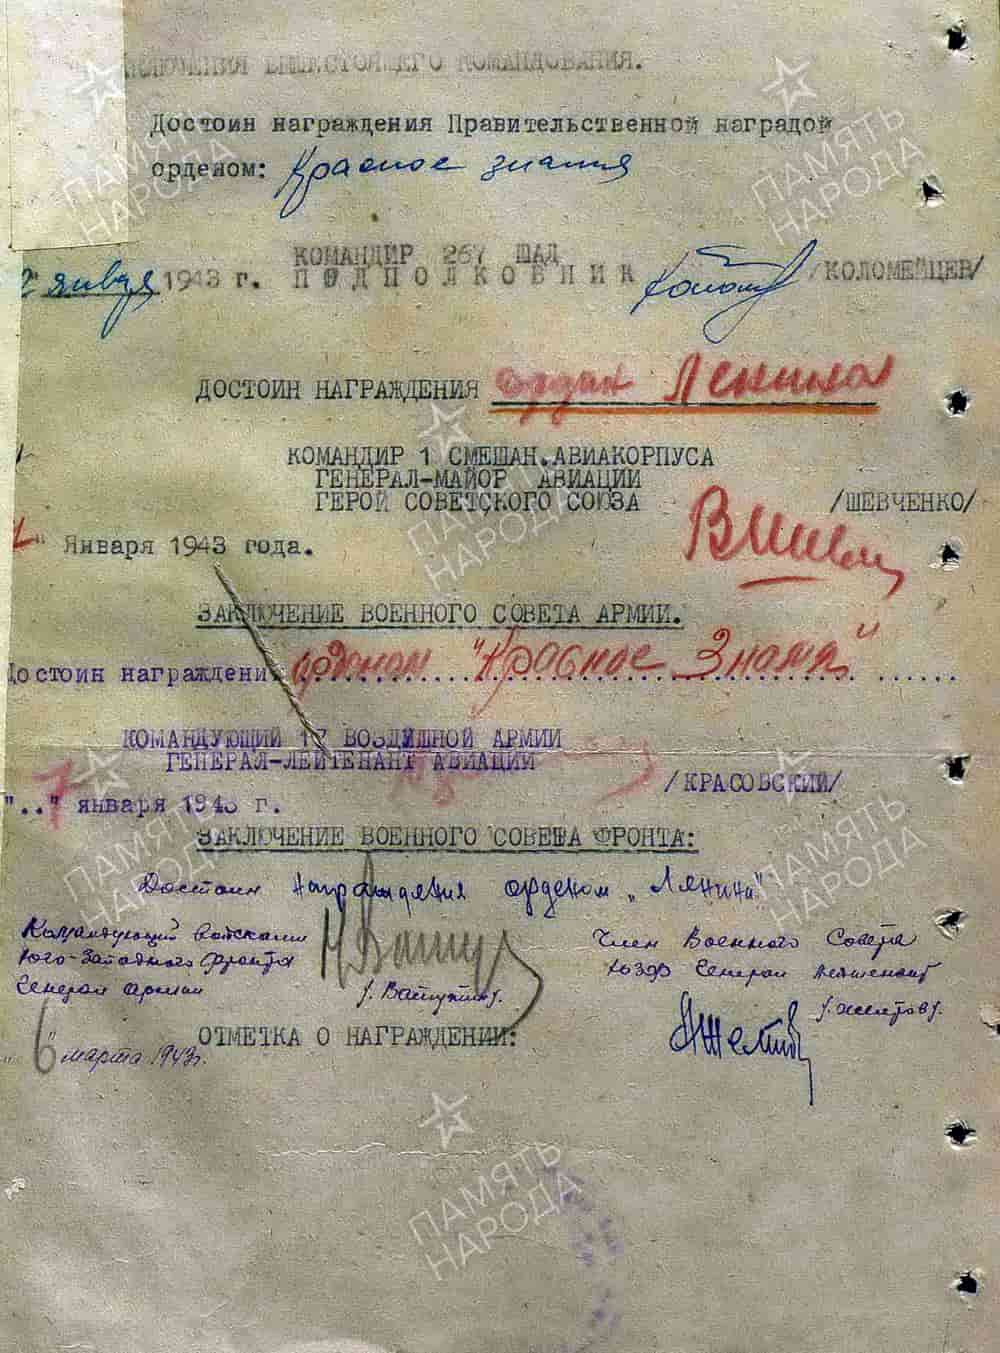 ЗАКЛЮЧЕНИЯ ВЫШЕСТОЯЩЕГО КОМАНДОВАНИЯ.
Достоин награждения Правительственной наградой
орденом: Красное знамя
КОМАНДИР 267 ШАД
января 1943 г. ПОДПОЛКОВНИК /КОЛОМЕЙЦЕВ/
ДОСТОИН НАГРАЖДЕНИЯ орден Ленина
КОМАНДИР 1 СМЕШАН.АВИАКОРПУСА
ГЕНЕРАЛ-МАЙОР АВИАЦИИ
ГЕРОЙ СОВЕТСКОГО СОЮЗА /ШЕВЧЕНКО/
" Января 1943 года.
ЗАКЛЮЧЕНИЕ ВОЕННОГО СОВЕТА АРМИИ.
Достоин награждени орденом "Красное Знамя"
КОМАНДУЮЩИЙ 17 ВОЗДУШНОЙ АРМИИ
ГЕНЕРАЛ-ЛЕЙТЕНАНТ АВИАЦИИ
/КРАСОВСКИЙ/
"7" января 1943 г.
ЗАКЛЮЧЕНИЕ ВОЕННОГО СОВЕТА ФРОНТА:
Достоин награждения орденом „Ленина"
Командующий войсками
Юго-Западного фронта
Генерал армии /. Ватутин/.
Член Военного Совета
ЮЗФ Генерал Лейтенант
/. Желтов/.
ОТМЕТКА О НАГРАЖДЕНИИ:
"6" марта 1943г.
ПАМЯТЬ
НАРОДА
ПАМЯТЬ
НАРОДА
ПАМЯТЬ
НАРОДА
ПАМЯТЬ
НАРОДА
ПАМЯТЬ
НАРОДА
ПАМЯТЬ
НАРОДА